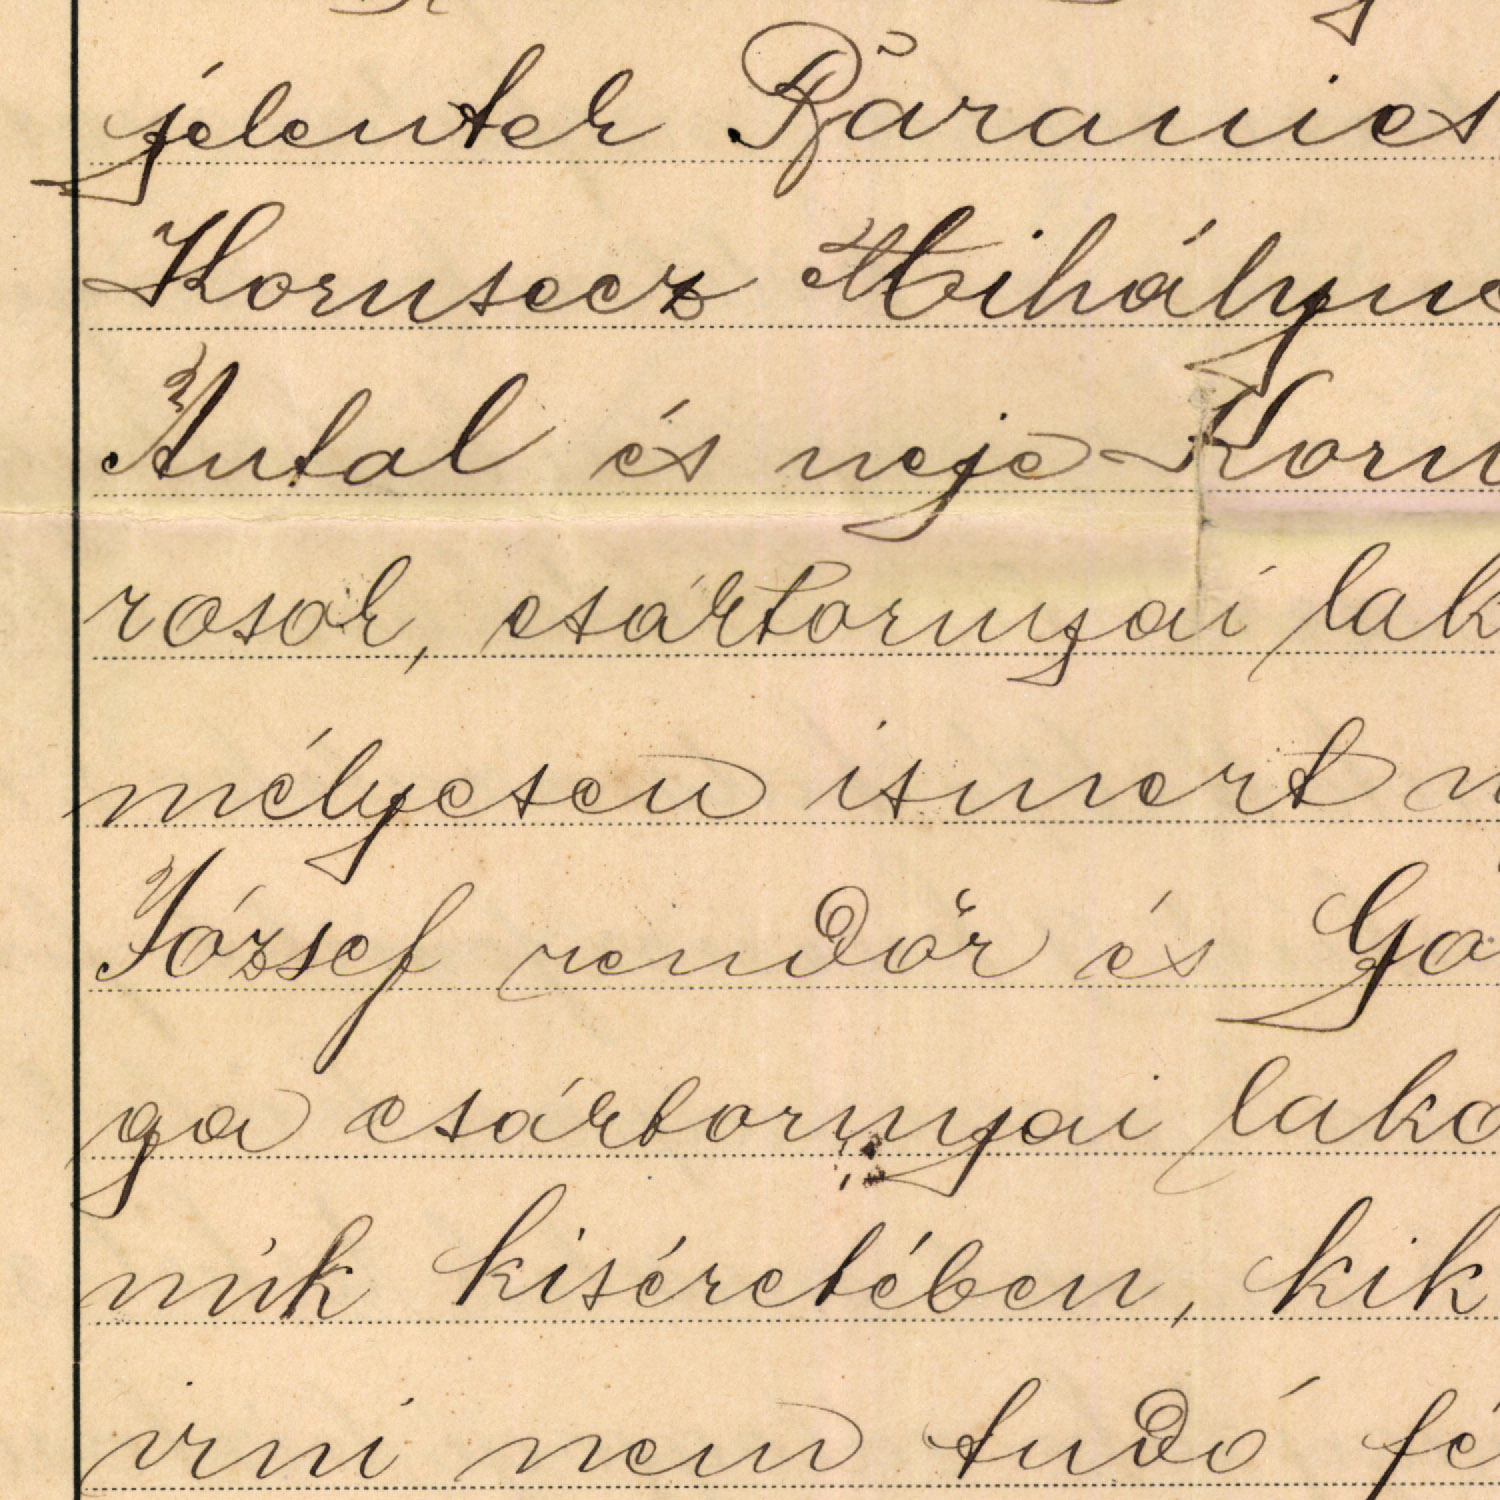 jelentek Baranics
Horusecz Mihályne
Antal és neje Horu
rosok, csáktornyai lak
mélyesen ismert
József rendőr és Gá
ga csáktornyai lako
mik kisérétében, kik
irni nem tudó fé